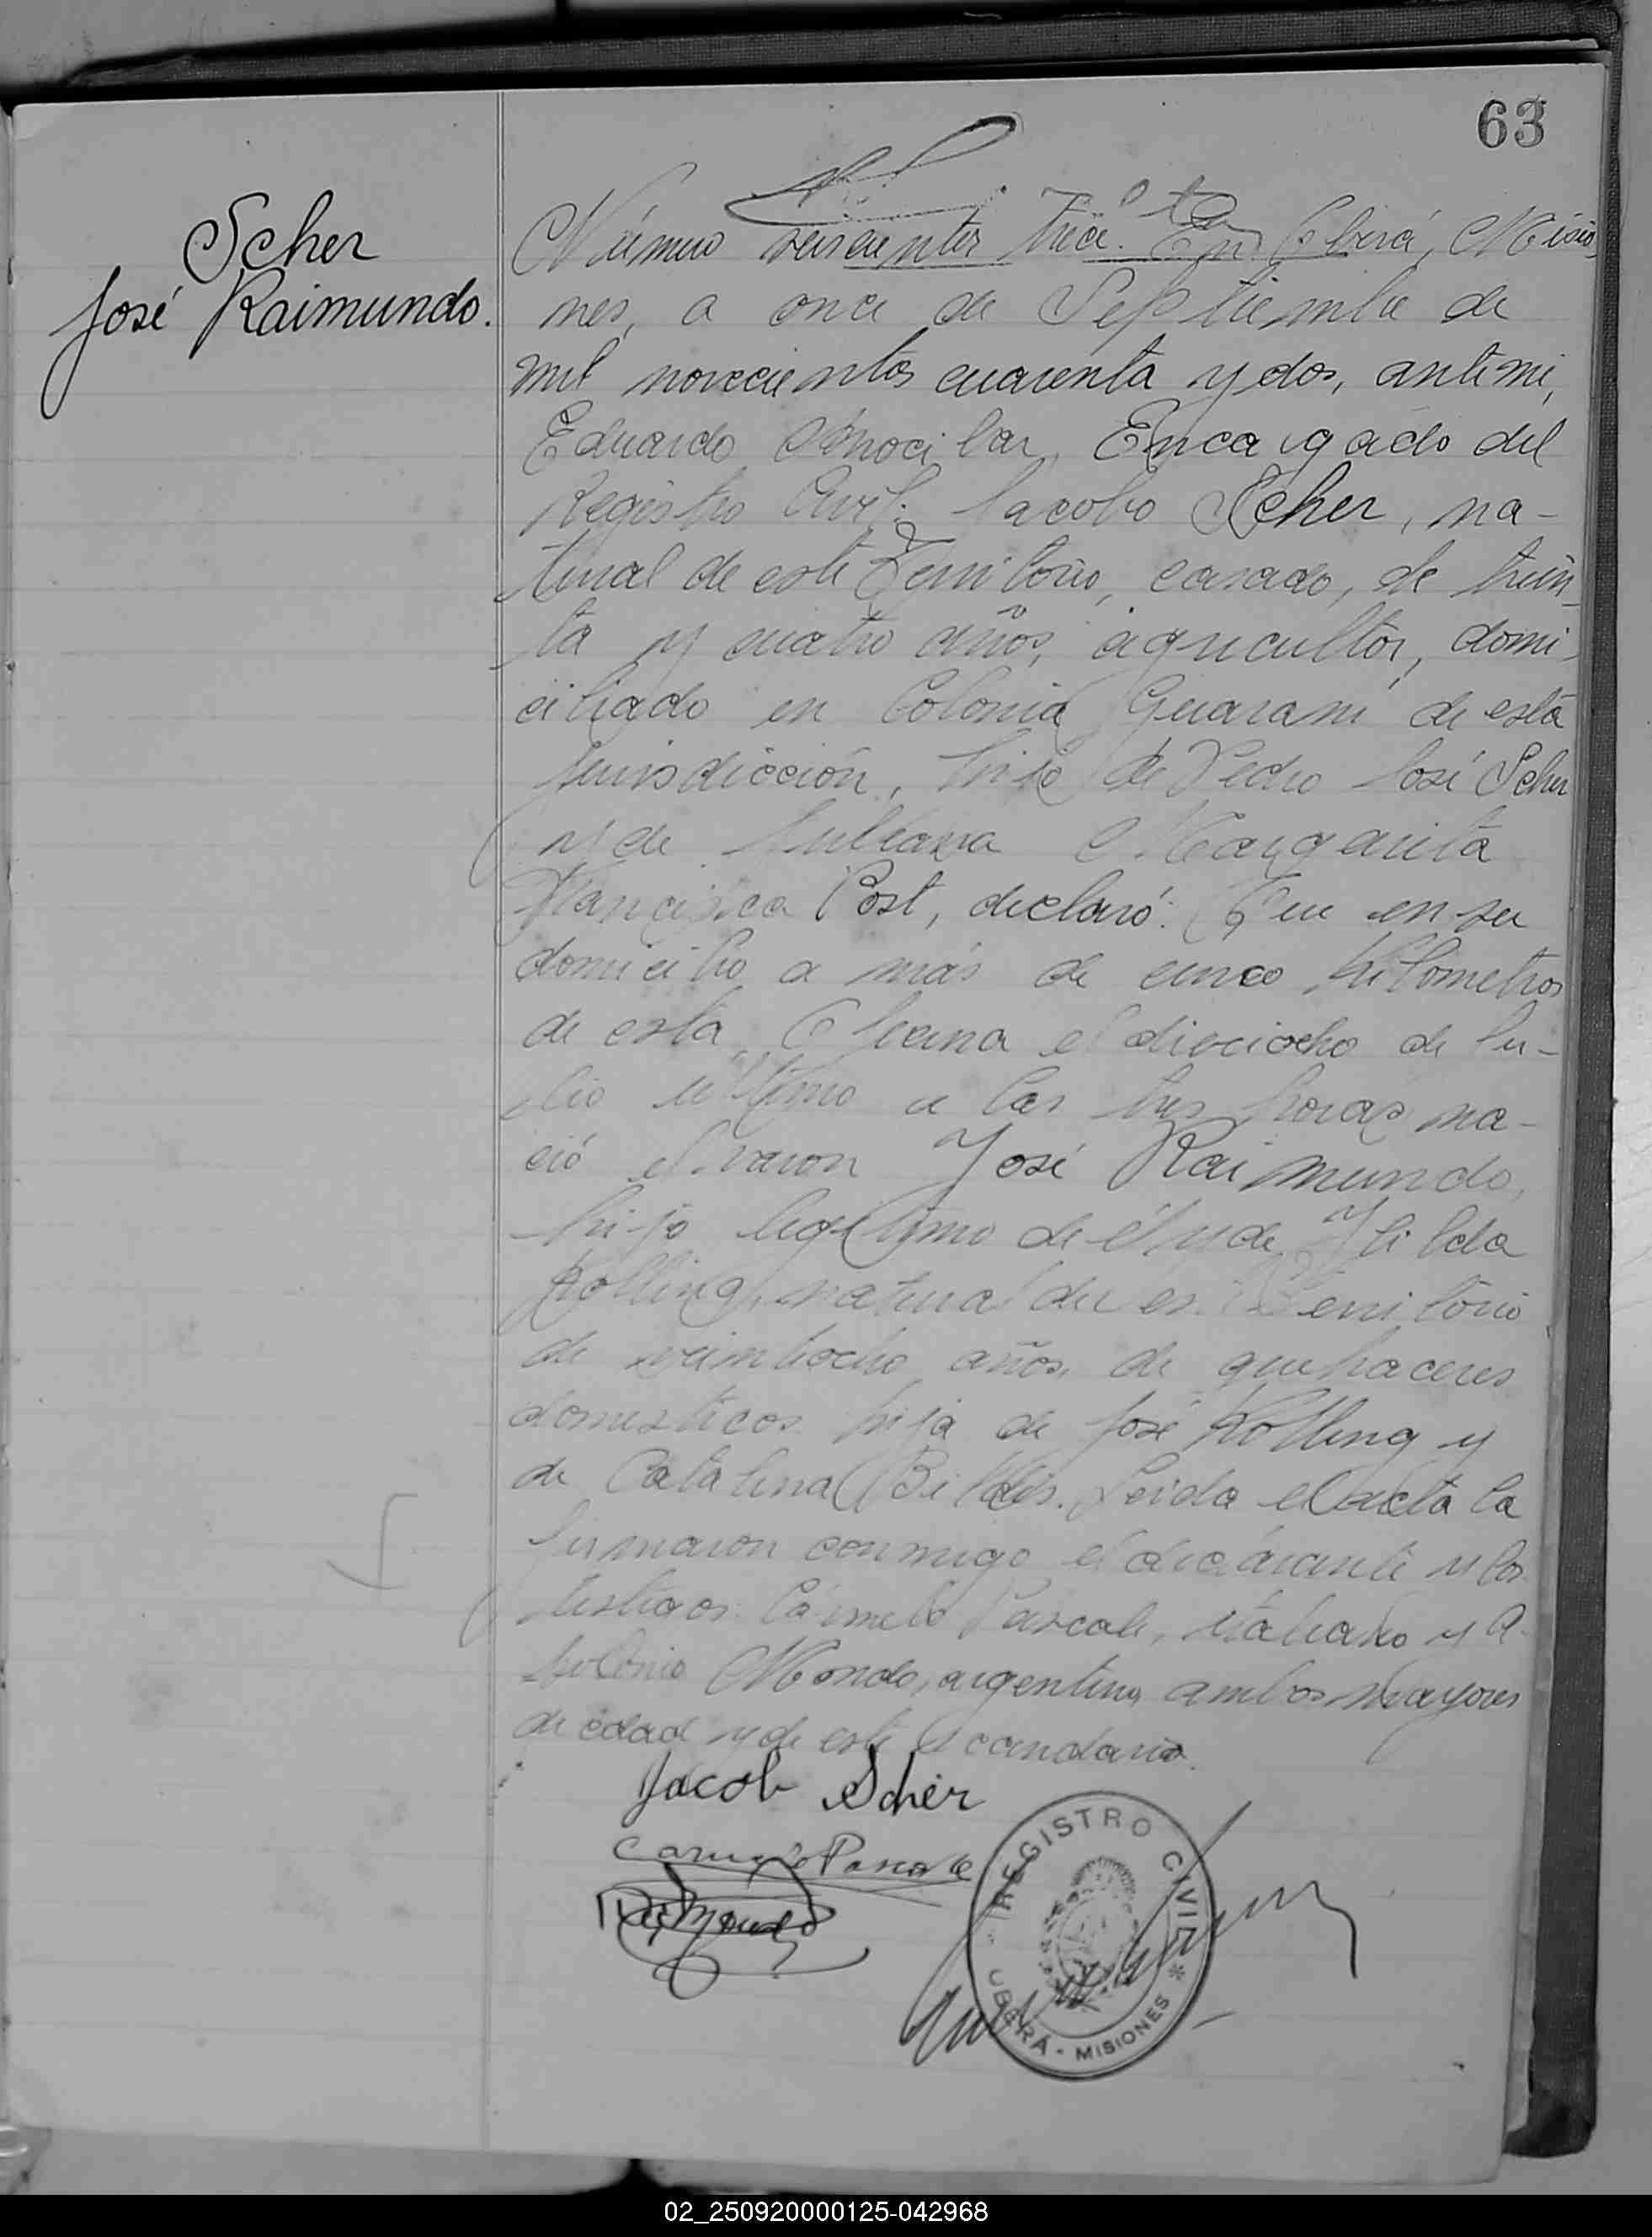 63
Scher
José Raimundo.
Número seiscientos trece. En Oberá, Misio-
nes, a once de Septiembre de
mil novecientos cuarenta y dos, ante mi,
Eduardo Encargado del
Registro Civil: Jacobo Scher, na-
tural de este Territorio, casado, de trein-
ta y cuatro años, agricultor, domi-
ciliado en Colonia Guaraní de esta
jurisdicción, hijo de Pedro José Scher
y de Juliana Margarita
Francisca Post, declaró: Que en su
domicilio a más de cinco kilometros
de esta Oficina el dieciocho de Ju-
lio último a las tres horas na-
ció el varon José Raimundo,
hijo legitimo de él y de Ilda
Kolling, natural de este Territorio
de veintiocho años, de quehaceres
domesticos hija de José Kolling y
de Catalina Leida el acta la
firmaron conmigo el declarante y los
testigos: Carmelo Pascale, italiano y A-
polonio Mondo, argentino, ambos mayores
de edad y de este vecindario.
Jacob Scher
Carmelo Pascale
REGISTRO CIVIL
OBERÁ - MISIONES
02_250920000125-042968